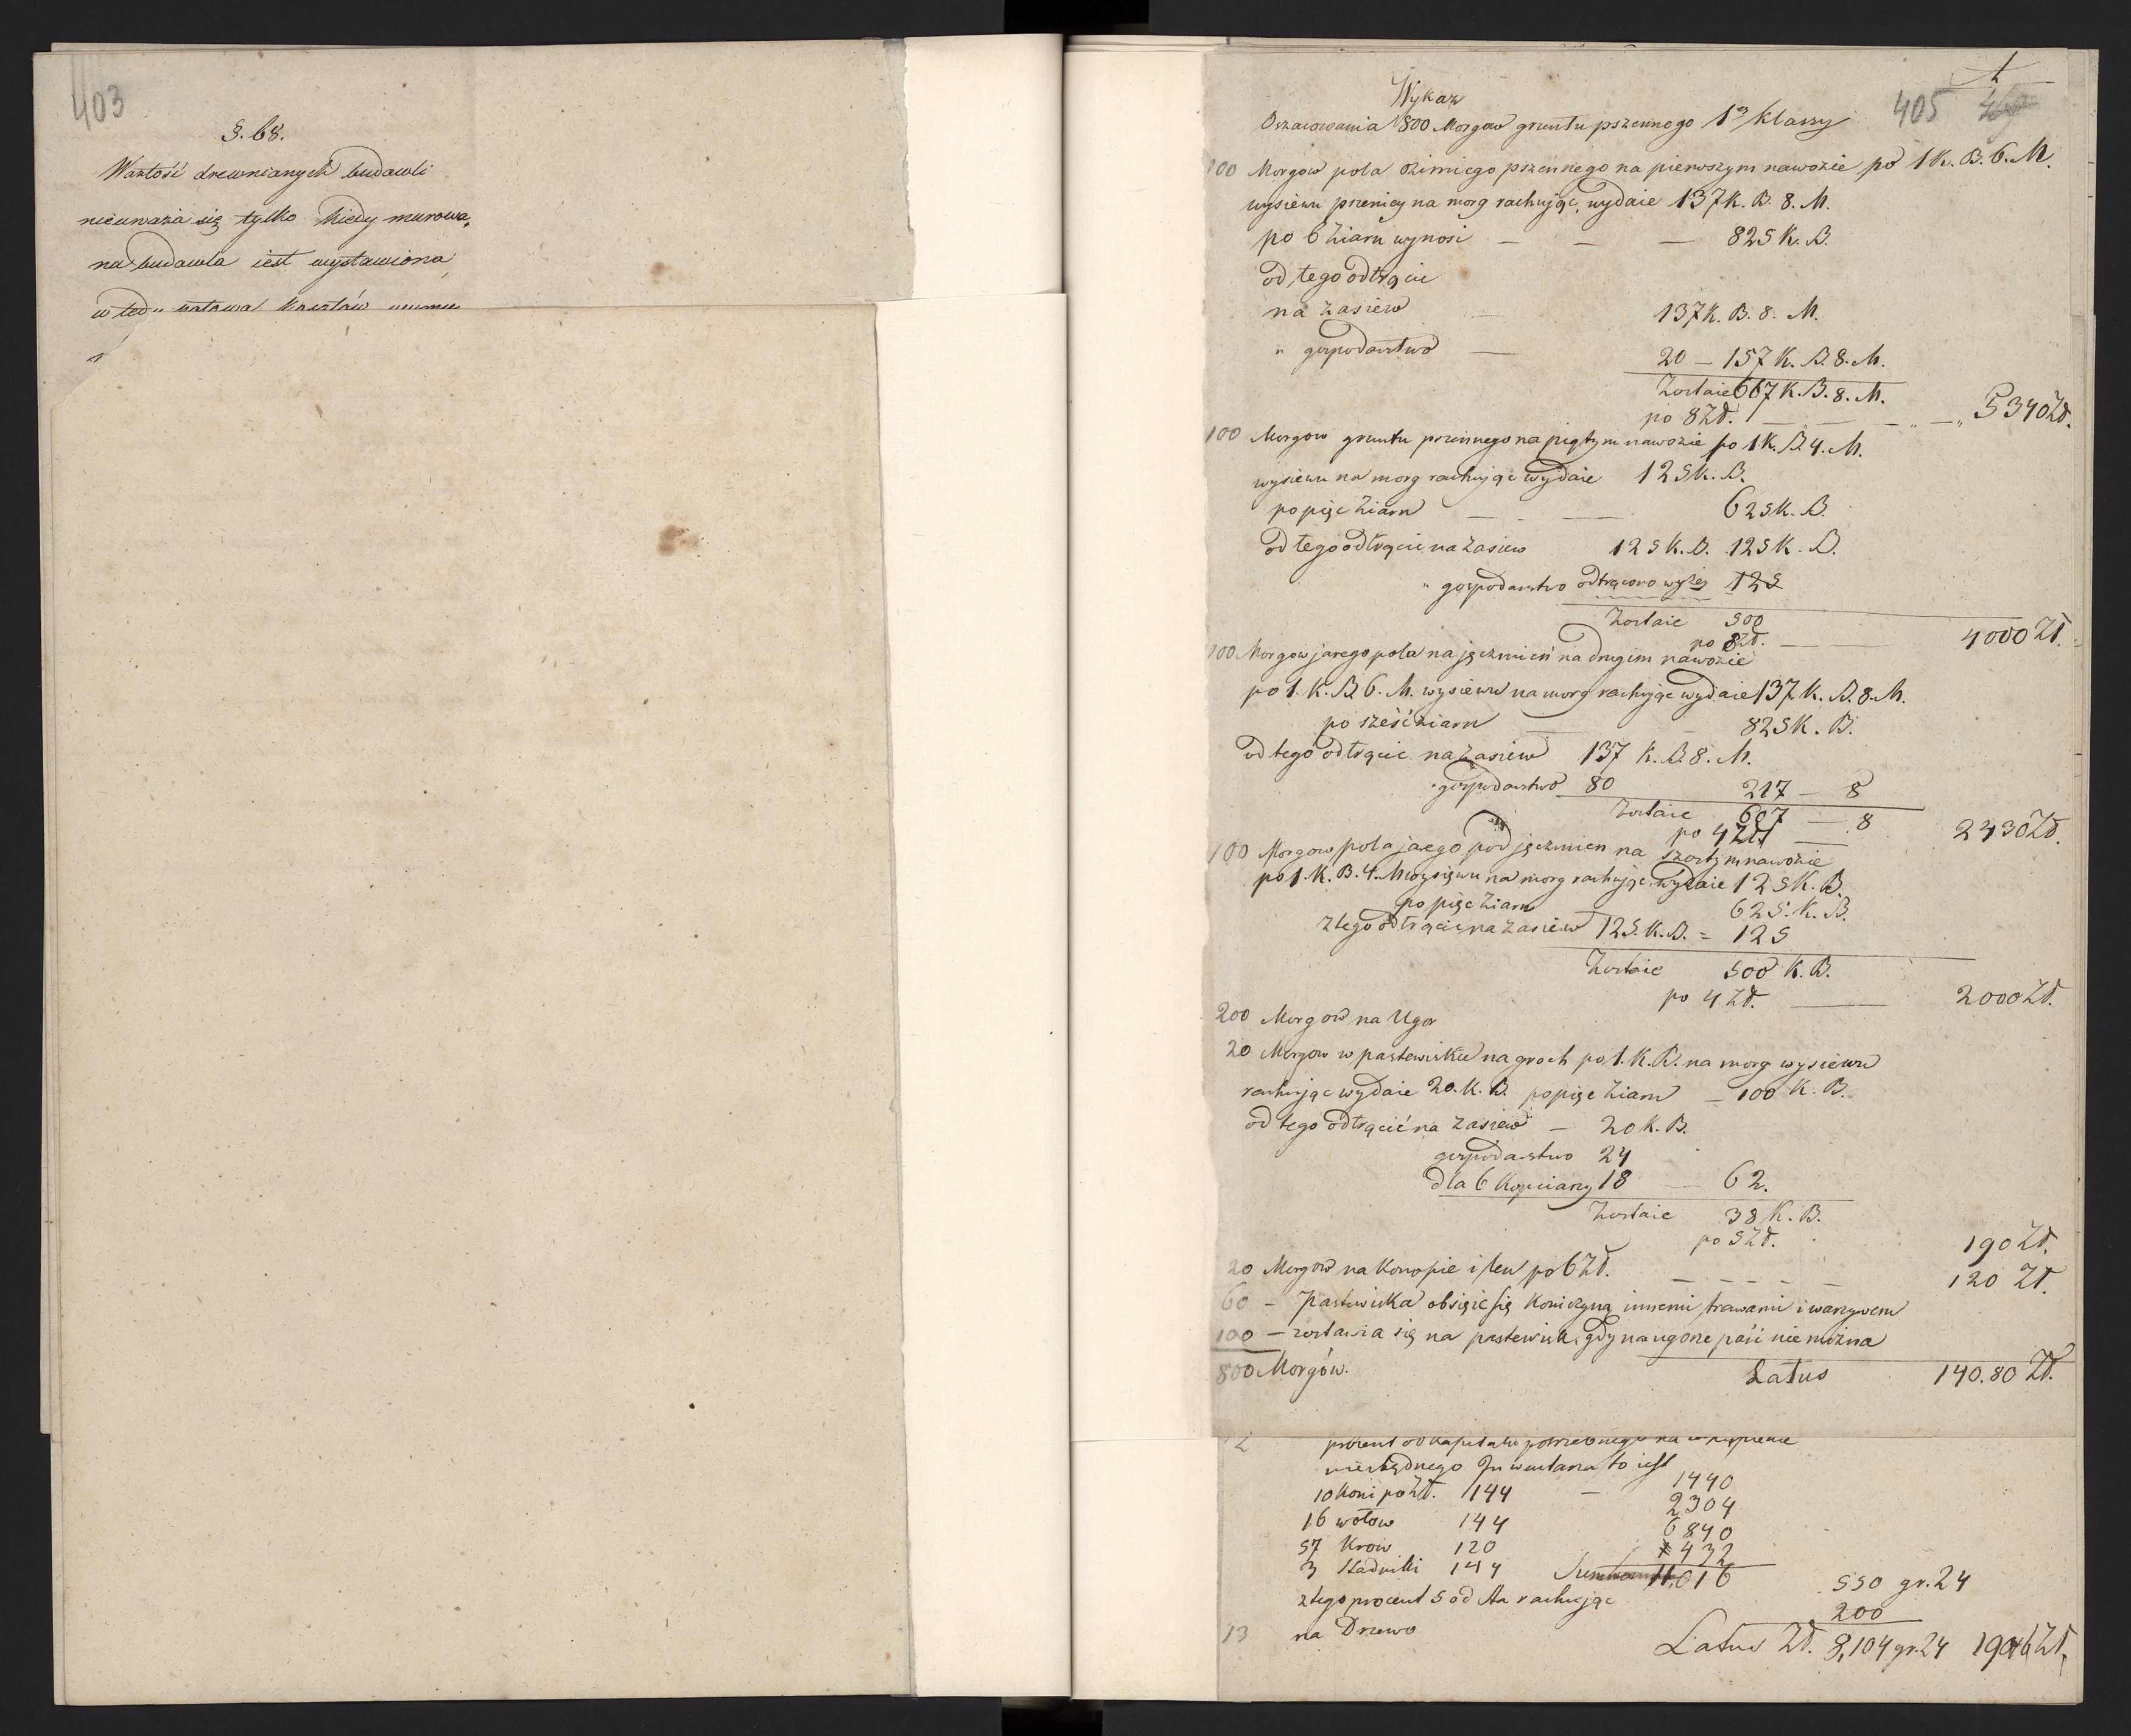 403
§. 68.
Wartość drewnianych budowli
nieuważa się tylko kiedy murowa,
na budowla iest wystawiona
w tedy
1
405
Wykaz
Oszacowania 800 Morgow gruntu pszennego 1ey Klassy
100 Morgow pola ozimiego pszennego na pierwszym nawozie po 1 K. B. 6. M.
wysiewu pszenicy na morg rachując, wydaie 137 K. B. 8. M.
po 6 ziarn wynosi — — — 825 K. B.
od tego odtrącić
na zasiew — 137 K. B. 8. M.
" gospodarstwo — 20 — 157 K. B. 8. M.
Zostaie 667 K. B. 8. M.
po 8 Zł. — — — 5340 Zł.
100 Morgow gruntu pszennego na piątym nawozie po 1 K. B. 4. M.
wysiewu na morg rachując wydaie 125 K. B.
po pięc ziarn — — 625 K. B.
od tego odtrącic na zasiew 125 K. B. 125 K. B.
" gospodarstwo odtrącono wyżey 125
Zostaie 500
po 8 Zł. — 4000 Zł.
100 Morgow jarego pola na jęczmień na drugim nawozie
po 1. K. B. 6. M. wysiewu na morg rachując wydaie 137 K. B. 8. M.
po sześć ziarn — 825 K. B.
od tego odtrącic na zasiew 137 K. B. 8. M.
" gospodarstwo 80 217 — 8
Zostaie 607 — 8
po 4 Zł. — 2430 Zł.
100 Morgow pola jaego pod jęczmien na szostym nawozie
po 1. K. B. 4. M. wysiewu na morg rachując wydaie 125 K. B.
po pięc ziarn 625. K. B.
z tego odtrącic na zasiew 125. K. B. = 125
Zostaie 500 K. B.
po 4 Zł. — 2000 Zł.
200 Morgow na Ugor
20 Morgow w pastewniku na groch po 1. K. B. na morg wysiewu
rachując wydaie 20. K. B. po pięc ziarn — 100 K. B.
od tego odtrącić na zasiew — 20 K. B.
gospodarstwo 24
dla 6 Kopciarzy 18 — 62.
Zostaie 38 K. B.
po 5 Zł. 190 Zł.
20 Morgow na Konopie i len po 6 Zł. — — — — — 120 Zł.
60 — Pastwiska obsięie się Koniczyną innemi trawami i warzywem
100 — zostawia się na pastewnik, gdy na ugorze paść nie można
800 Morgów. Latus 140.80 Zł.
12 procent od kapitalu potrzebnego na
niezbędnego Inwentarza to iest
10 Koni po Zł. 144 — 1440
16 wołow 144 2304
57 Krow 120 6840
3 Stadniki 144 432
Summa 11,016
z tego procent 5 od sta rachując 550 gr. 24
13 na Drzewo 200
Latus Zł. 8,104 gr. 24